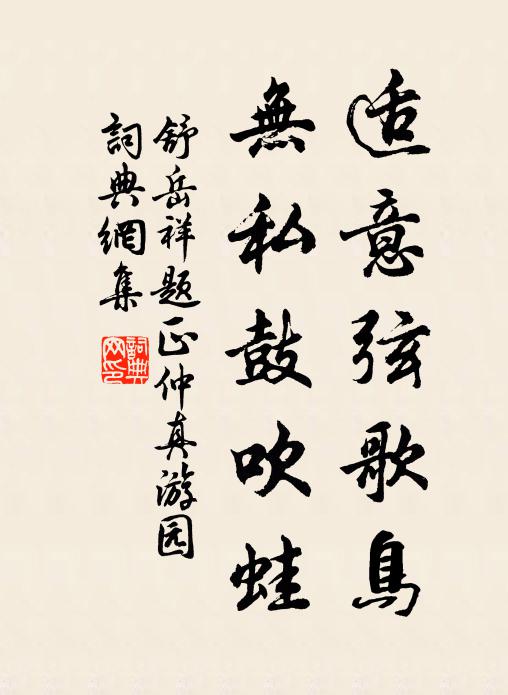 适意弦歌鳥
無私鼓吹蛙
舒岳祥题正仲真游园
詞典網集
詞典网印